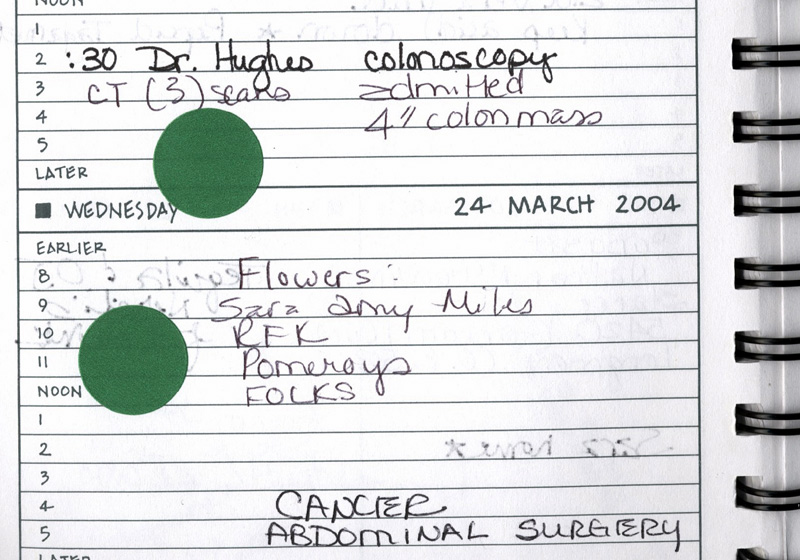 NOON
1
2 :30 Dr. Hughes colonoscopy
3 CT (3) scans admitted
4 4" colon mass
5
LATER
WEDNESDAY 24 MARCH 2004
EARLIER
8 Flowers:
9 Sara Amy Miles
10 RFK
11 Pomeroys
NOON FOLKS
1
2
3
4 CANCER
5 ABDOMINAL SURGERY
LATER